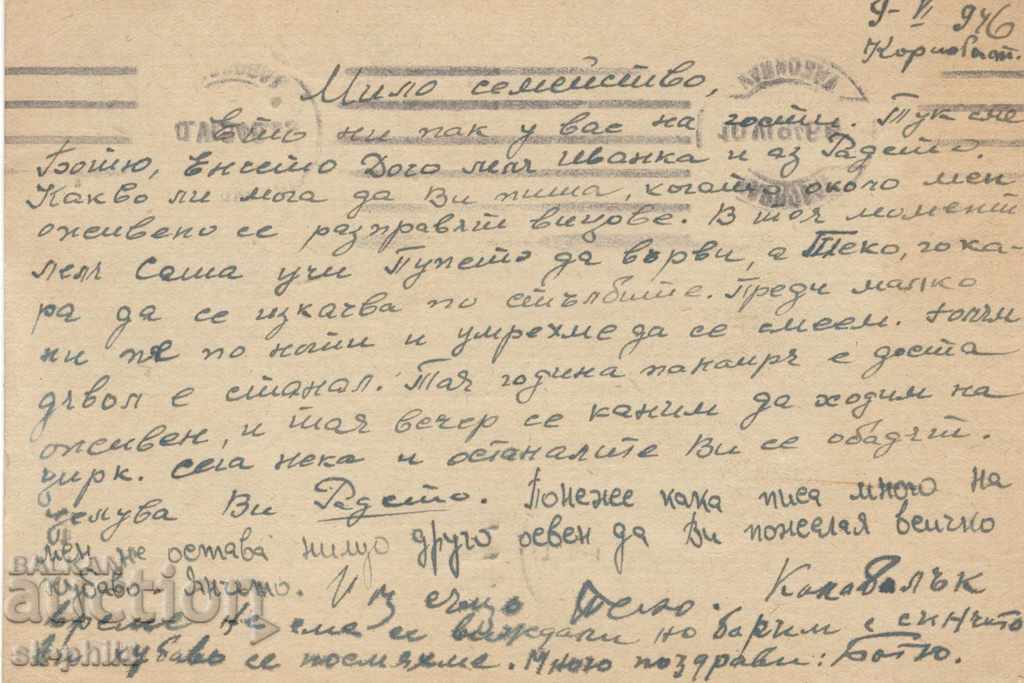 9-VI 946
Карнобат.
Мило семейство,
Ето ни пак у вас на гости. Тук сме
Ботю, Енчето Дого леля Иванка и аз Радето.
Какво ли мога да Ви пиша, когато около мен
оживено се разправят вицове. В тоя момент
леля Саша учи Пупето да върви, а Теко, го ка-
ра да се изкачва по стълбите. Преди малко
ни пе по ноти и умрехме да се смеем. голям
дявол е станал. Тая година панаиря е доста
оживен, и тая вечер се каним да ходим на
цирк. Сега нека и останалите Ви се обадят.
целува Ви Радето. Понеже кака писа много на
мен не остава нищо друго освен да Ви пожелая всичко
хубаво - Янчето. И аз също Телю.
време не сме се виждали но барим с синчето
Ви хубаво се посмяхме. Много поздрави: Ботю.
BALKAN
auction
slaphiky